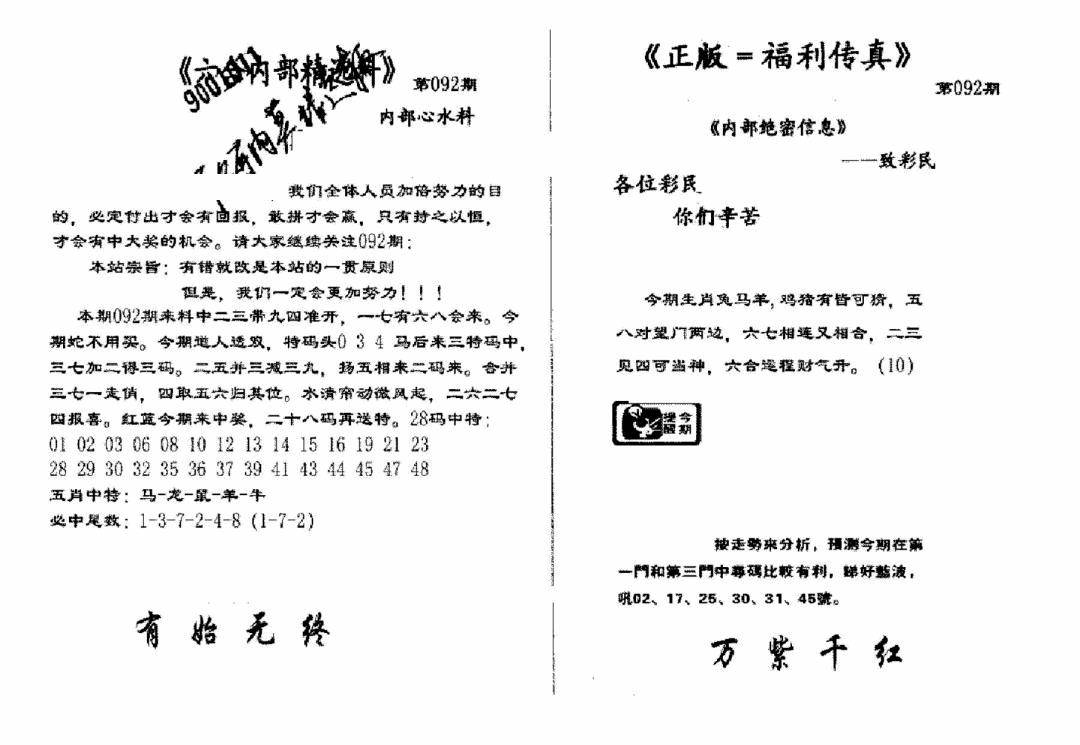 内部精
第092期
内部心水料
我们全体人员加倍努力的目
的，必定付出才会有回报，敢拼才会赢，只有持之以恒，
才会有中大奖的机会。请大家继续关注092期：
本站宗旨：有错就改是本站的一贯原则
但是，我们一定会更加努力！！！
本期092期来料中二三带九四准开，一七有六八会来。今
期蛇不用买。今期道人透双，特码头0 3 4 马后来三特码中，
三七加二得三码。二五并三减三九，扬五相来二码来。合并
三七一走俏，四取五六归其位。水清帘动微风起，二六二七
四报喜。红蓝今期来中奖，二十八码再送特。28码中特：
01 02 03 06 08 10 12 13 14 15 16 19 21 23
28 29 30 32 35 36 37 39 41 43 44 45 47 48
五肖中特：马-龙-鼠-羊-牛
必中尾数：1-3-7-2-4-8 (1-7-2)
有始无终
《正版＝福利传真》
第092期
《内部绝密信息》
——致彩民
各位彩民
你们辛苦
今期生肖兔马羊,鸡猪有皆可猜，五
八对望门两边，六七相连又相合，二三
见四可当神，六合运程财气升。(10)
今期
提醒
按走勢來分析，預測今期在第
一門和第三門中尋碼比較有利，睇好藍波，
吼02、17、25、30、31、45號。
万紫千红